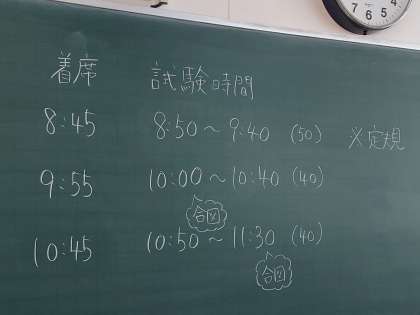 着席 試験時間
8:45 8:50~9:40 (50) ※定規
9:55 10:00~10:40 (40)
合図
10:45 10:50~11:30 (40)
合図